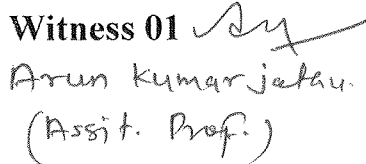 Witness 01
Arun Kumar jatav.
(Assit. Prof.)